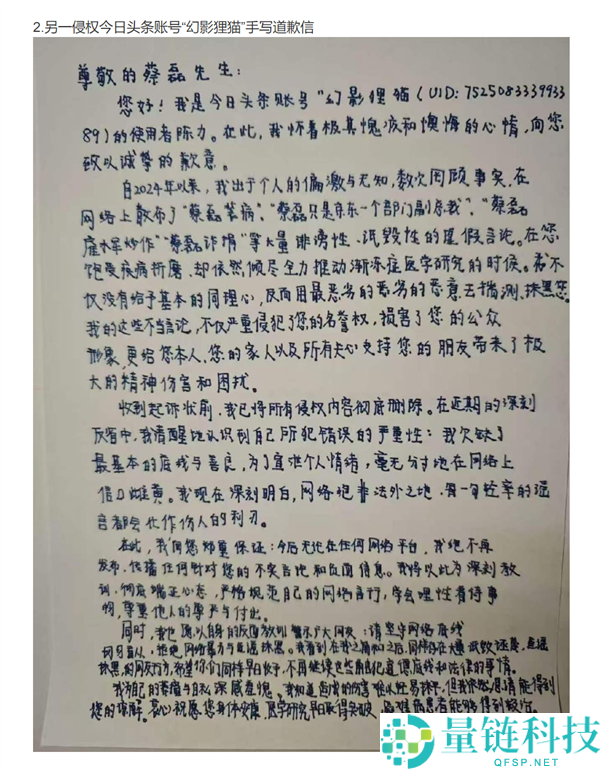 2.另一侵权今日头条账号“幻影狸猫”手写道歉信
尊敬的蔡磊先生：
您好！我是今日头条账号“幻影狸猫（UID：7525083339933
89）的使用者陈力。在此，我怀着极其愧疚和懊悔的心情，向您
致以诚挚的歉意。
自2024年以来，我出于个人的偏激与无知，数次罔顾事实，在
网络上散布了“蔡磊装病”、“蔡磊只是京东一个部门副总裁”、“蔡磊
雇水军炒作”“蔡磊诈捐”等大量诽谤性、诋毁性的虚假言论。在您
饱受疾病折磨、却依然倾尽全力推动渐冻症医学研究的时候。我不
仅没有给予基本的同理心，反而用最恶劣的恶劣的恶意去揣测、抹黑您。
我的这些不当言论，不仅严重侵犯了您的名誉权，损害了您的公众
形象，更给您本人、您的家人以及所有关心支持您的朋友带来了极
大的精神伤害和困扰。
收到起诉状前，我已将所有侵权内容彻底删除。在近期的深刻
反省中，我清醒地认识到自己所犯错误的严重性：我欠缺了
最基本的底线与善良，为了宣泄个人情绪，毫无分寸地在网络上
信口雌黄。我现在深刻明白，网络绝非法外之地，每一句轻率的谣
言都会化作伤人的利刃。
在此，我向您郑重保证：今后无论在任何网络平台，我绝不再
发布、传播任何针对您的不实言论和负面信息。我将以此为深刻教
训，彻底端正心态，严格规范自己的网络言行，学会理性看待事
物，尊重他人的尊严与付出。
同时，我也愿以自身的反面教训警示广大网友：请坚守网络底线
切勿盲从，拒绝网络暴力与造谣抹黑。我看到在我之前和之后，同样存在大量诋毁
抹黑的网友行为，希望你们同样早日收手，不再继续这些触犯道德底线和法律的事情。
我为自己的愚蠢与自私深感羞愧。我知道造成的伤害难以轻易抹平，但我依然恳请能得到
您的谅解。衷心祝愿您身体安康，医学研究早日取得突破，
量链科技
QFSP.NET